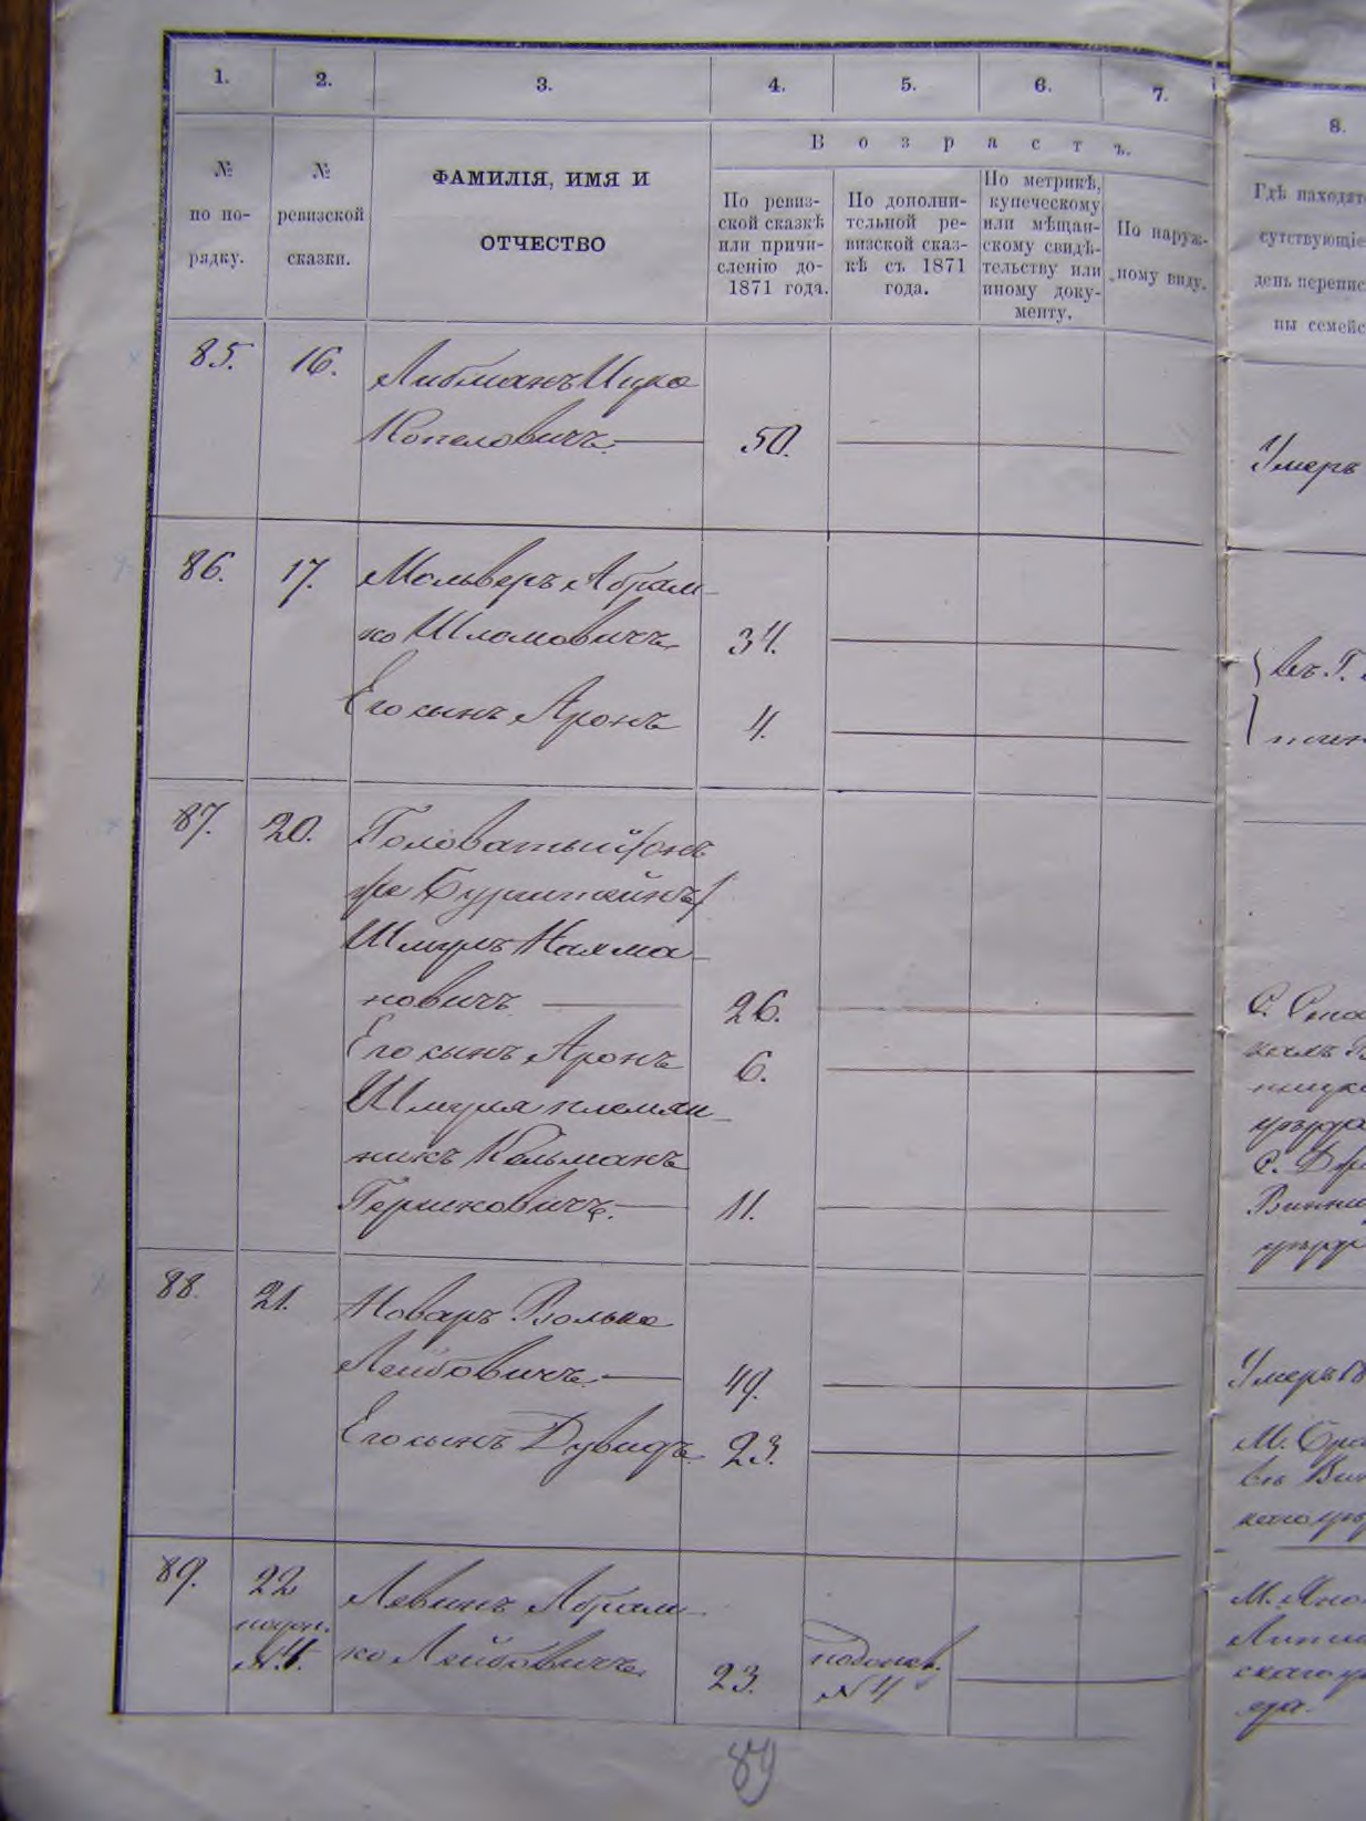 1. 2. 3. 4. 5. 6. 7. 8.
Возрастъ.
№ по по-рядку.
№ ревизской сказки.
ФАМИЛІЯ, ИМЯ И
ОТЧЕСТВО
По ревиз-
ской сказкѣ
или причи-
сленію до-
1871 года.
По дополни-
тельной ре-
визской сказ-
кѣ съ 1871
года.
По метрикѣ,
купеческому
или мѣщан-
скому свидѣ-
тельству или
иному доку-
менту.
По наруж-
ному виду.
Гдѣ находят
сутствующіе
день перепис
ны семейс
85. 16. Либманъ Ицко
Копеловичъ 50. Умеръ
86. 17. Мольверъ Абрам-
ко Шломовичъ 34.
въ. Г.
Его сынъ Аронъ 4.
87. 20. Головатый /онъ
же Бурштейнъ/
Шмулъ Нахма-
новичъ 26.
Его сынъ Аронъ 6.
Шмуля племян-
никъ Кельманъ
Гершковичъ 11.
С.
88. 21. Новаръ Волько
Лейбовичъ 49. Умеръ 18
Его сынъ Дувидъ 23.
М. Бра
въ Вин
89. 22 Левинъ Абрам-
ко Лейбовичъ 23. №4
М. Яно
скаго у
89